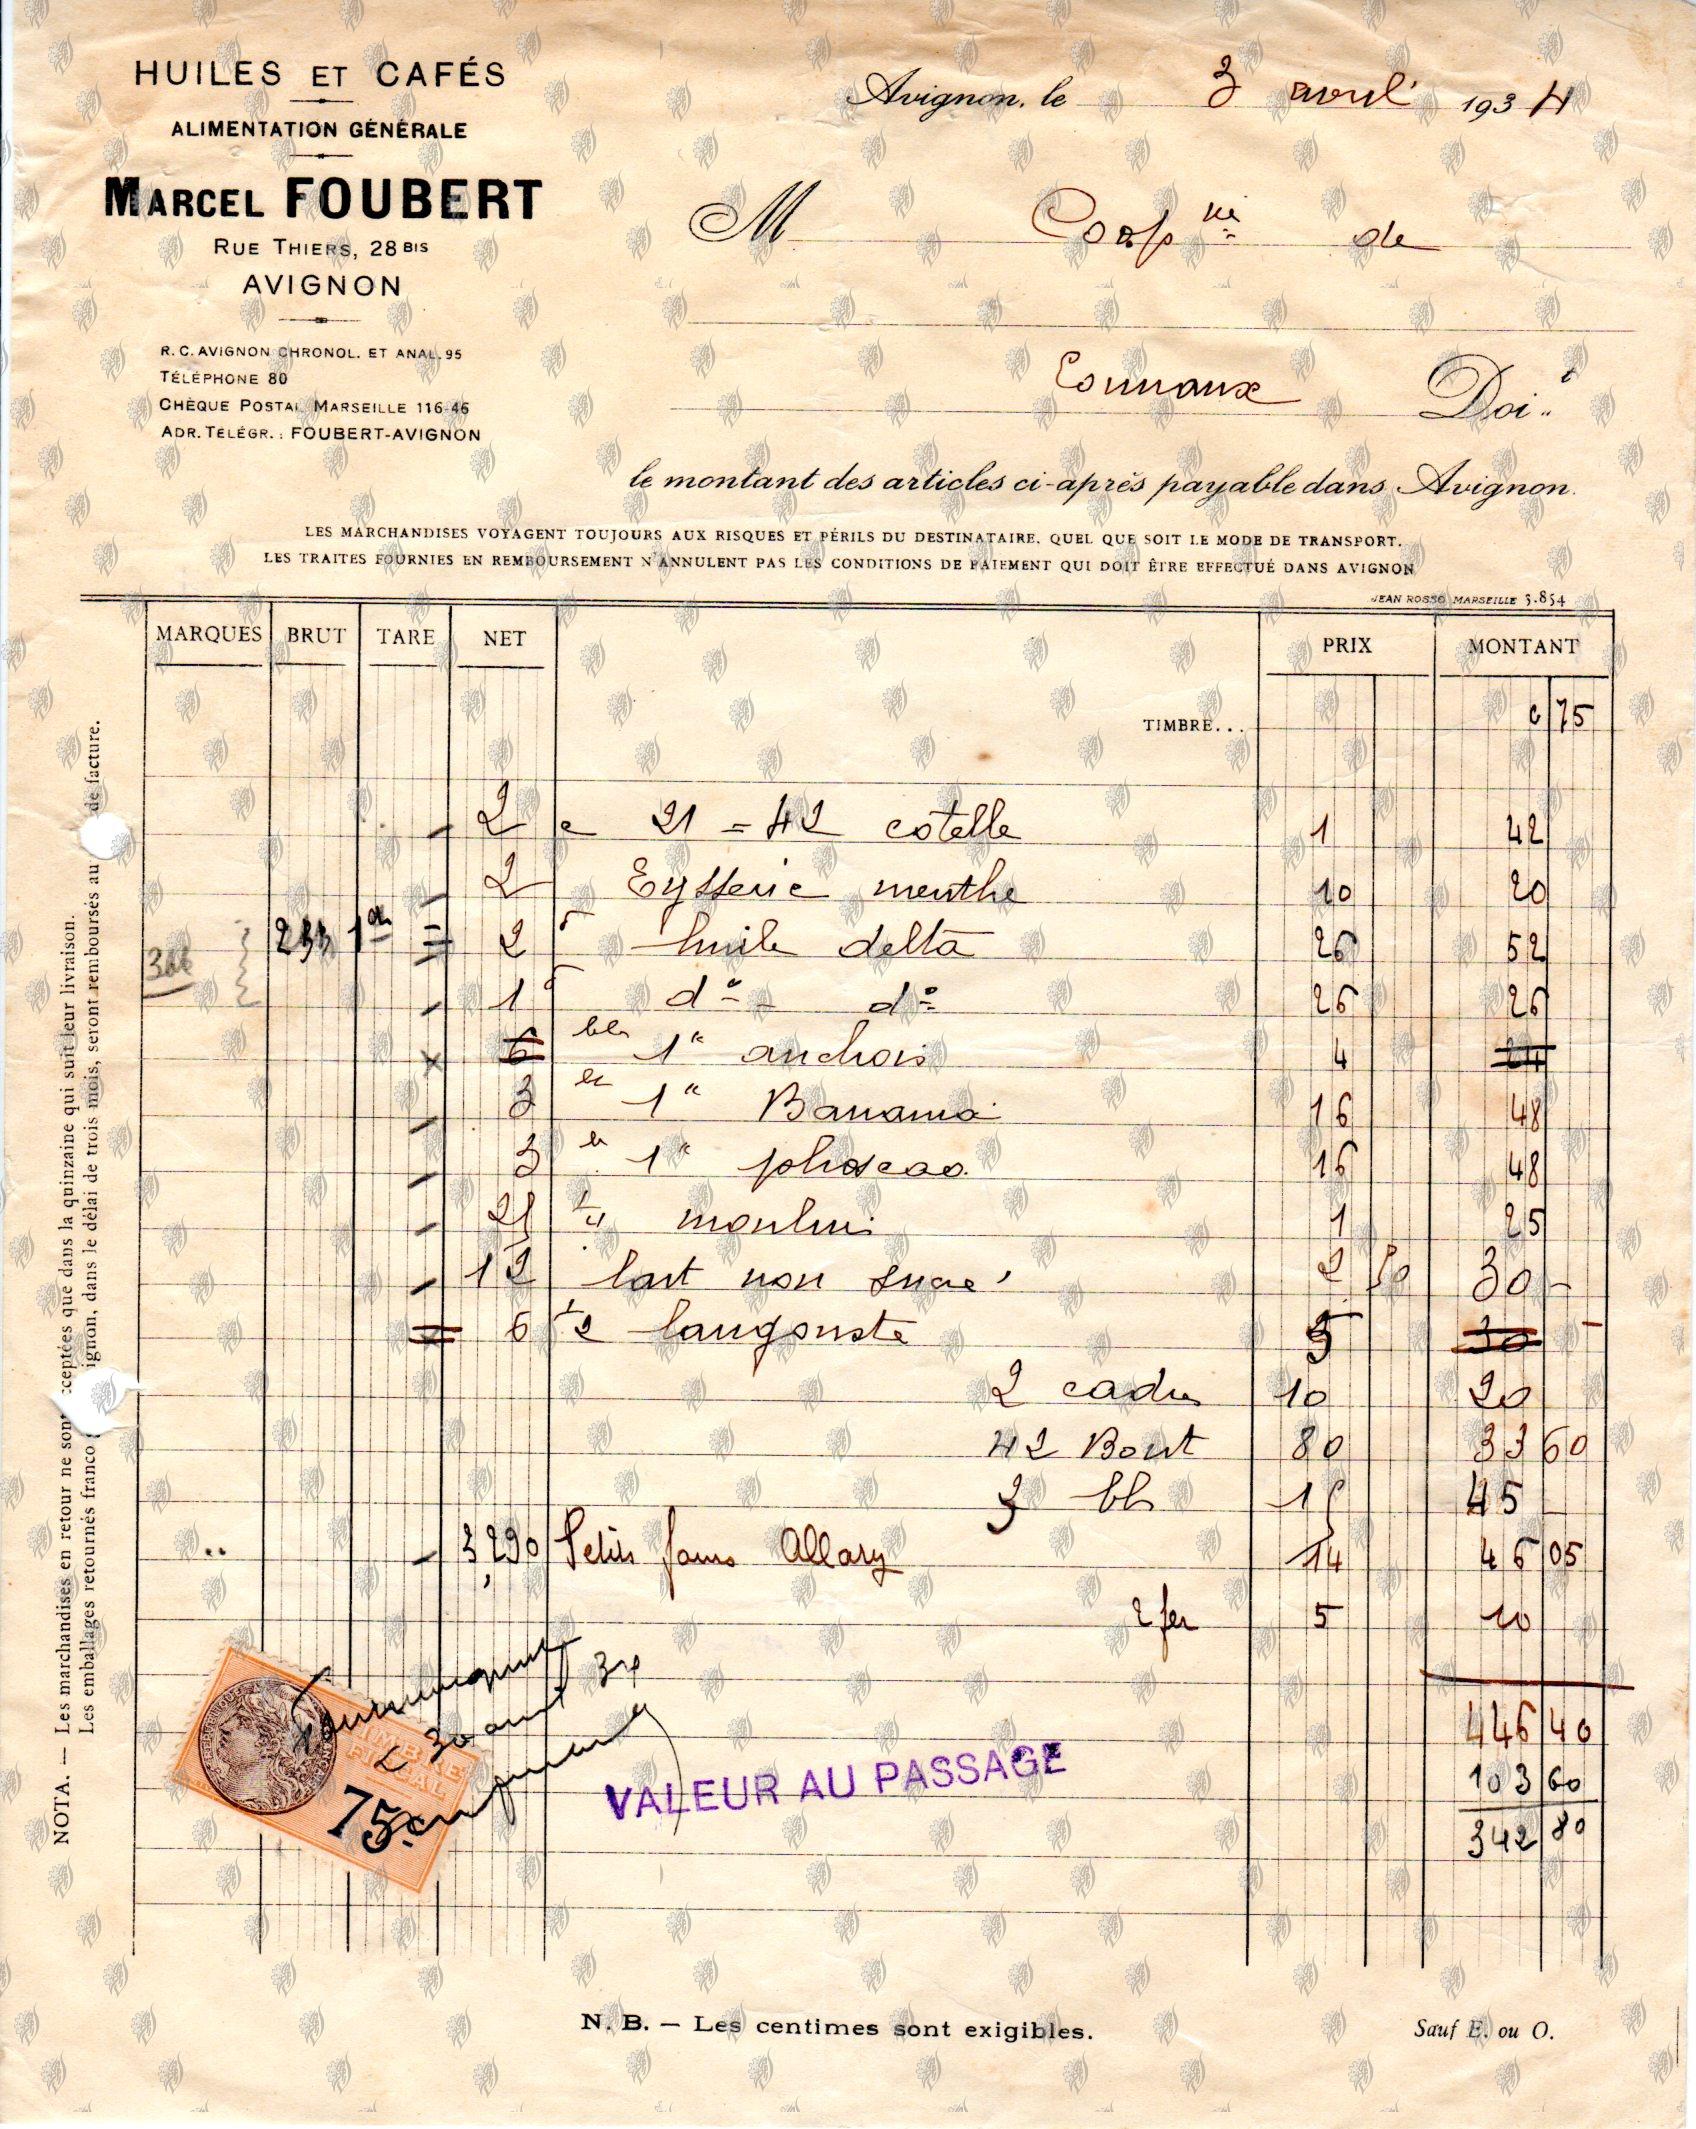 HUILES ET CAFÉS
ALIMENTATION GÉNÉRALE
MARCEL FOUBERT
RUE THIERS, 28 BIS
AVIGNON
R. C. AVIGNON CHRONOL. ET ANAL. 95
TÉLÉPHONE 80
CHÈQUE POSTAL MARSEILLE 116-46
ADR. TÉLÉGR. : FOUBERT-AVIGNON
Avignon, le 3 avril 1934
M Coop ve de
Connaux Doi..t
le montant des articles ci-après payable dans Avignon.
LES MARCHANDISES VOYAGENT TOUJOURS AUX RISQUES ET PÉRILS DU DESTINATAIRE, QUEL QUE SOIT LE MODE DE TRANSPORT.
LES TRAITES FOURNIES EN REMBOURSEMENT N'ANNULENT PAS LES CONDITIONS DE PAIEMENT QUI DOIT ÊTRE EFFECTUÉ DANS AVIGNON
JEAN ROSSO MARSEILLE 3.854
MARQUES BRUT TARE NET PRIX MONTANT
TIMBRE... 75
2 c 21 = 42 cotelle 1 42
2 Eysseric menthe 10 20
2 huile delta 26 52
1 d° - d° 26 26
6 bls 1" anchois 4 24
3 1" Banania 16 48
3 1" phoscao 16 48
25 1/4 moulin 1 25
12 lait non sucré 2 50 30 -
6 1/2 langouste 5 30 -
2 cadre 10 20
42 Bout 80 33 60
3 bls 15 45 -
3,290 Petits fours Allary 14 46 05
2 fer 5 10
446 40
103 60
342 80
TIMBRE
FISCAL
75c
30 avril 34
VALEUR AU PASSAGE
N. B. — Les centimes sont exigibles.
Sauf E. ou O.
NOTA. — Les marchandises en retour ne sont acceptées que dans la quinzaine qui suit leur livraison.
Les emballages retournés franco ignon, dans le délai de trois mois, seront remboursés au de facture.